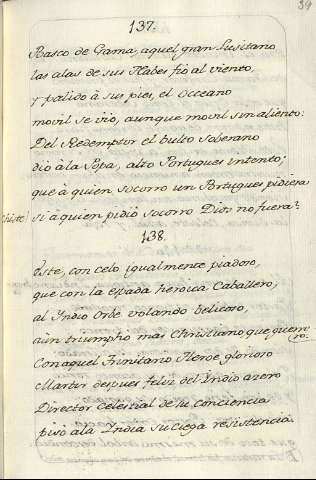 39
137.
Basco de Gama, aquel gran Lusitano
las alas de sus Nabes fió al viento,
y palido à sus pies, el Occeano
movil se vio, aunque movil sin aliento:
Del Redemptor el bulto soberano
dió à la Popa, alto Portugues intento;
que à quien socorro un Portugues pidiera
si à quien pidió socorro Dios no fuera?
138.
Este, con celo igualmente piadoso,
que con la espada heroica Caballero;
al Indio Orbe volando belicoso,
aún triumpho mas Christiano que guerrero.
Con aquel Trinitario Heroe glorioso
Martir despues feliz del Indio acero
Director Celestial de su conciencia
pisó à la India su ciega resistencia.